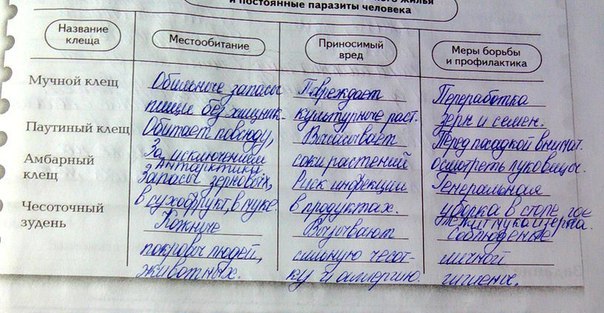 и постоянные паразиты человека
Название клеща
Местообитание
Приносимый вред
Меры борьбы и профилактика
Мучной клещ
Обильные запасы
пищи без хищник.
Повреждает
культурные раст.
Переработка
зерн и семен.
Паутиный клещ
Обитает повсюду,
За исключением
Антарктики
Высасывает
соки растений
Перед посадкой внимат.
осмотреть луковицы.
Амбарный
клещ
Запасы зерновых,
в сухофрукт, в муке.
Риск инфекции
в продуктах.
Генеральная
уборка в
Чесоточный
зудень
Кожные
покровы людей,
животных.
Вызывают
сильную чесот-
ку и аллергию.
Соблюдение
личной
гигиены.